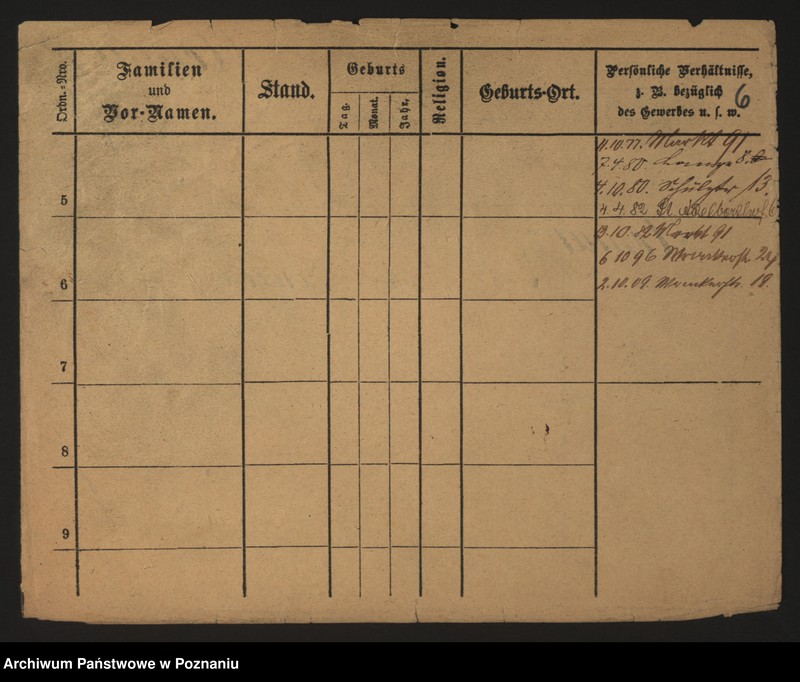 Ordn.=Nro.
Familien
und
Vor-Namen.
Stand.
Geburts
Tag.
Monat.
Jahr.
Religion.
Geburts-Ort.
Persönliche Verhältnisse,
z. B. bezüglich
des Gewerbes u. s. w.
6
4.10.77. Markt 91
7.4.80. Lange 8.
4.10.80. Schützstr 13.
5
4.4.82
3.10.82 Markt 91
6 10 96
6
2.10.09. 18.
7
8
9
Archiwum Państwowe w Poznaniu